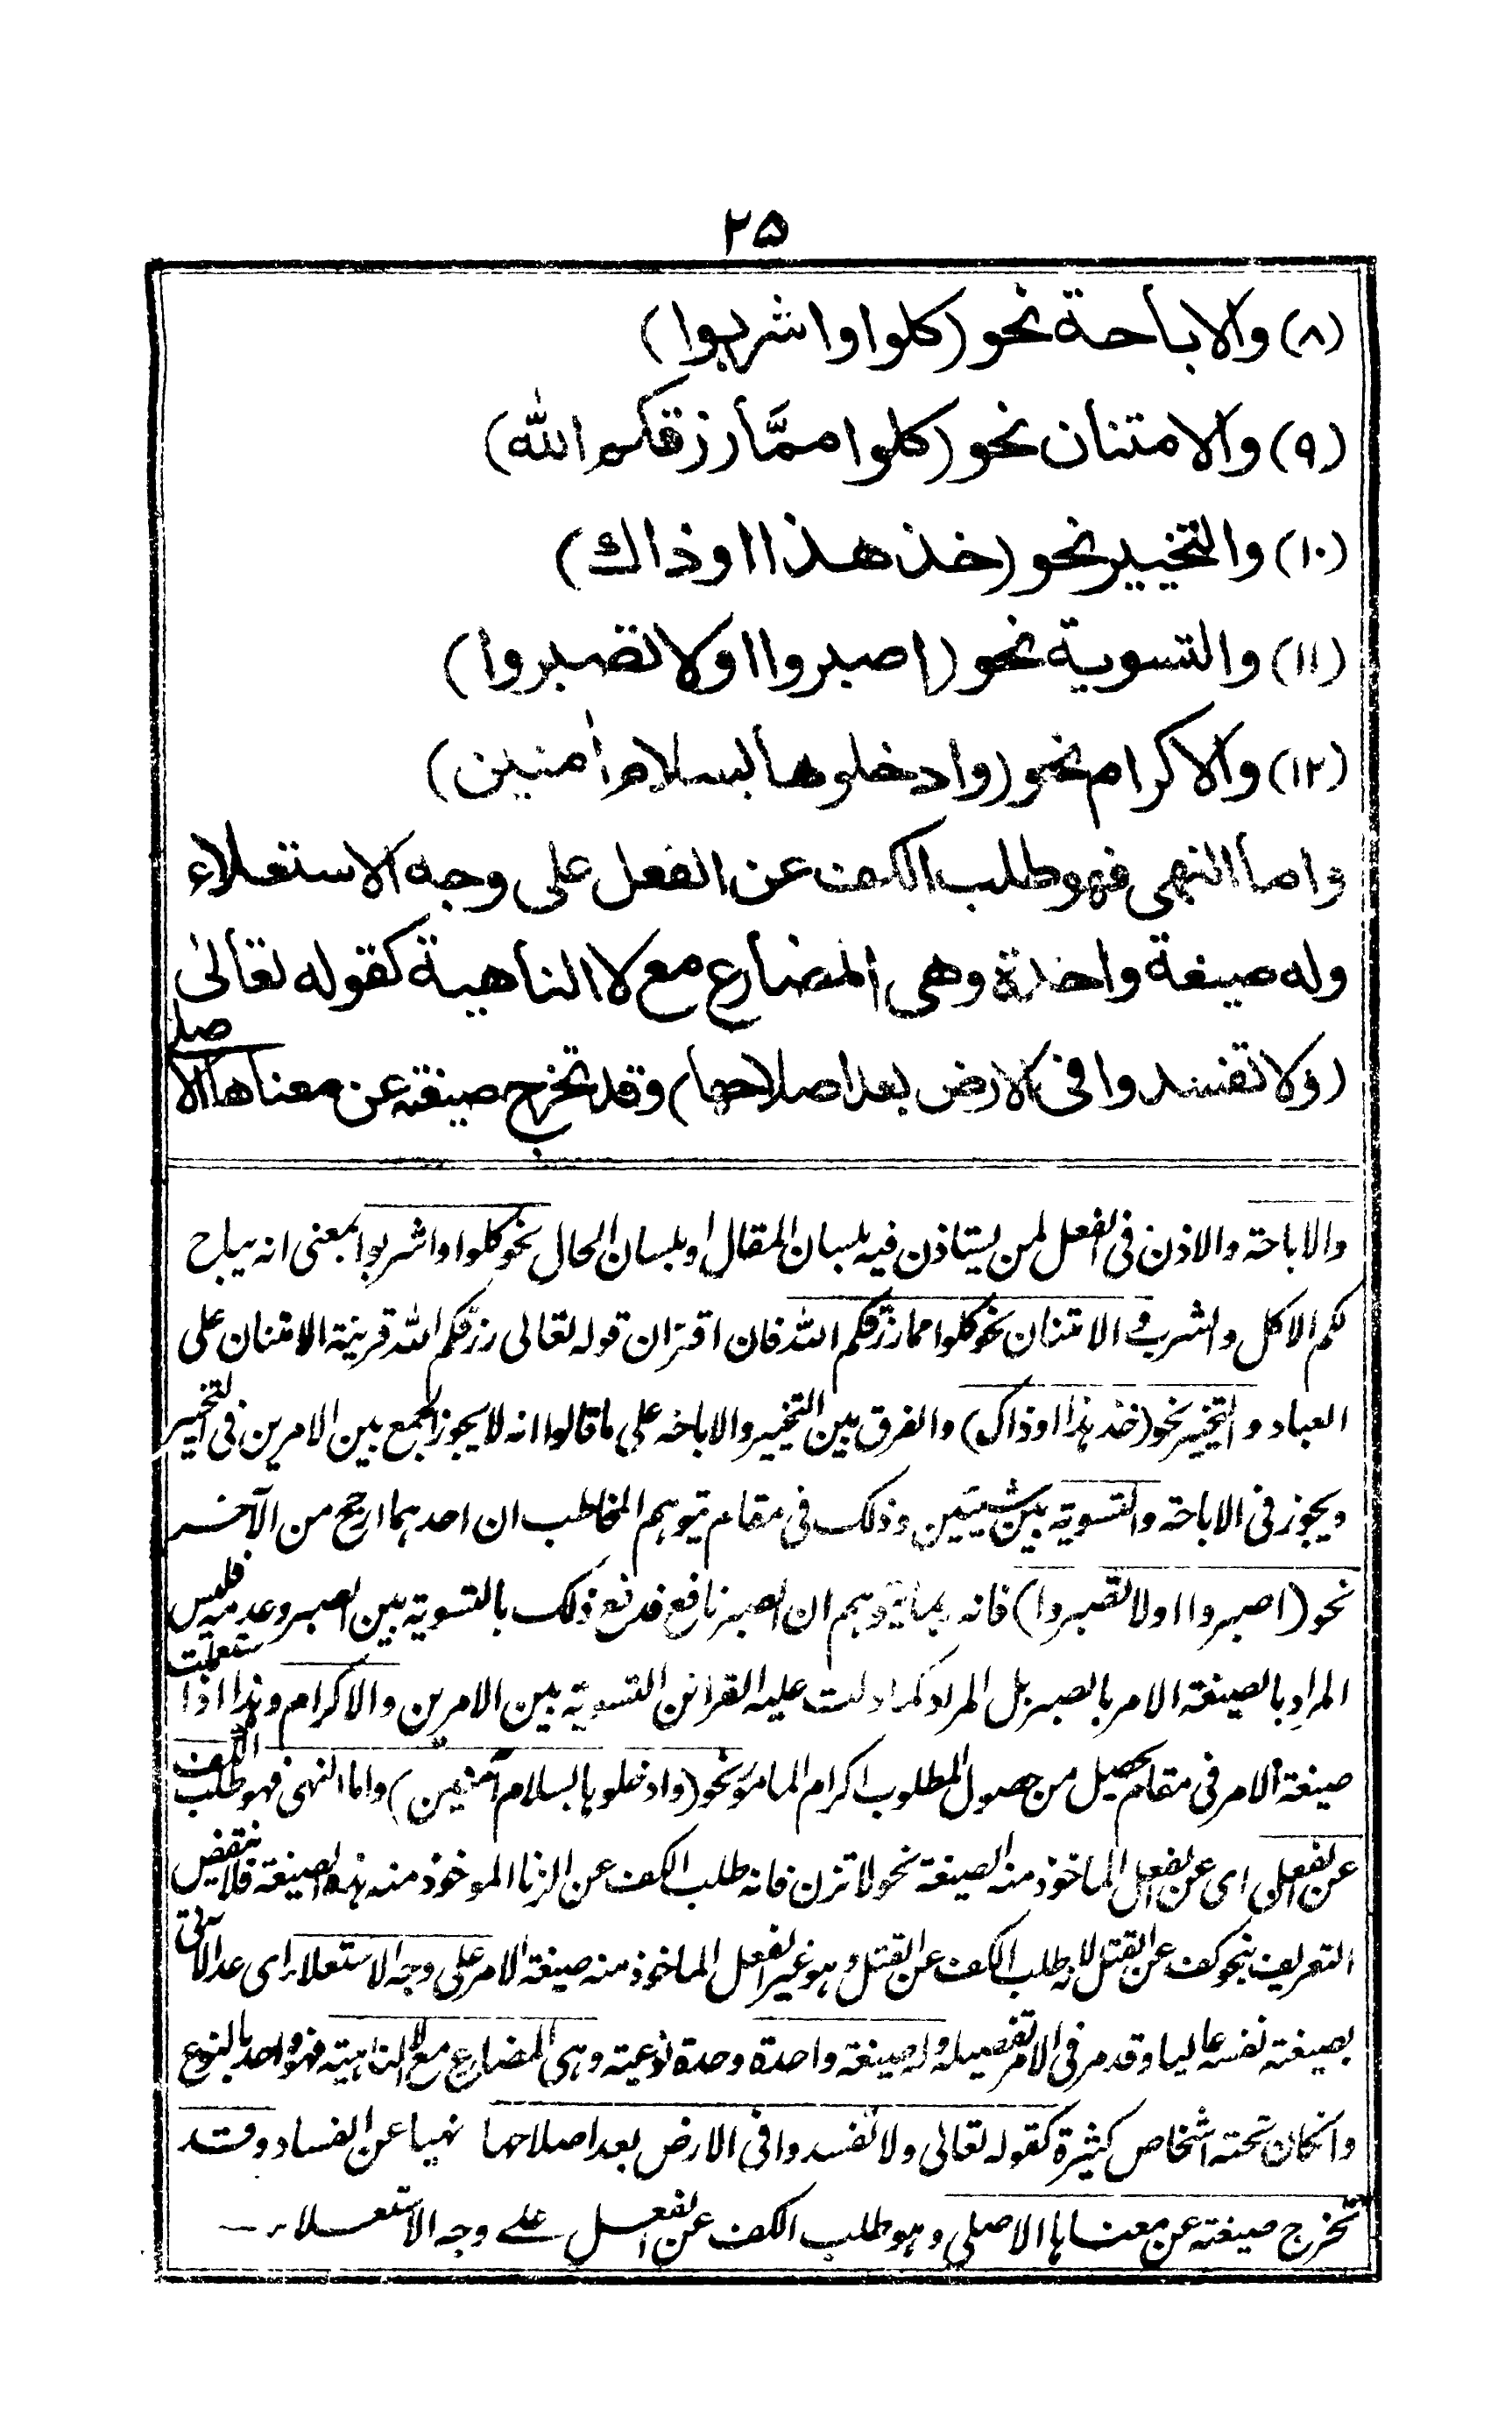 ٢٥
(٨) والاباحة نحو (كلوا واشربوا)
(٩) والامتنان نحو (كلوا ممَّا رزقكم الله)
(١٠) والتخيير نحو (خذ هذا او ذاك)
(١١) والتسوية نحو (اصبروا اولا تصبروا)
(١٢) والاكرام نحو (وادخلوها بسلام اٰمنين)
واما النهى فهو طلب الكف عن الفعل على وجه الاستعلاء
وله صيغة واحدة وهى المضارع مع لا الناهية كقوله تعالىٰ
(ولا تفسدوا فى الارض بعد اصلاحها) وقد تخرج صيغته عن معناها الاصلى
والاباحة والاذن فى الفعل لمن يستاذن فيه بلسان المقال او بلسان الحال نحو كلوا واشربوا بمعنى انه يباح
لكم الاكل والشرب و الامتنان نحو كلوا مما رزقكم الله فان اقتران قوله تعالى رزقكم الله قرينة الامتنان على
العباد و التخيير نحو (خذ هذا او ذاك) والفرق بين التخيير والاباحة على ما قالوا انه لا يجوز الجمع بين الامرين فى التخيير
ويجوز فى الاباحة والتسوية بين شيئين وذلك فى مقام يتوهم المخاطب ان احدهما ارجح من الآخر
نحو (اصبروا اولا تصبروا) فانه ربما يتوهم ان الصبر نافع فدفع ذلك بالتسوية بين الصبر وعدمه فليس
المراد بالصيغة الامر بالصبر بل المراد كما دلت عليه القرائن التسوية بين الامرين والاكرام وهذا اذا استعملت
صيغة الامر فى مقام يحصل من حصول المطلوب اكرام المامور نحو (وادخلوها بسلام آمنين) واما النهى فهو طلب الكف
عن الفعل اى عن الفعل الماخوذ منه الصيغة نحو لا تزن فانه طلب الكف عن الزنا الموخوذ منه هذه الصيغة فلا ينتقض
التعريف بنحو كف عن القتل لانه طلب الكف عن القتل وهو غير الفعل الماخوذ منه صيغة الامر على وجه الاستعلاء اى عد الآتى
بصيغته نفسه عاليا وقد مر فى الامر تفصيله وله صيغة واحدة وحدة نوعية وهى المضارع مع لا الناهية فهو واحد بالنوع
وانكان تحته اشخاص كثيرة كقوله تعالى ولا تفسدوا فى الارض بعد اصلاحها نهيا عن الفساد وقد
تخرج صيغته عن معناها الاصلى وهو طلب الكف عن الفعل على وجه الاستعلاء